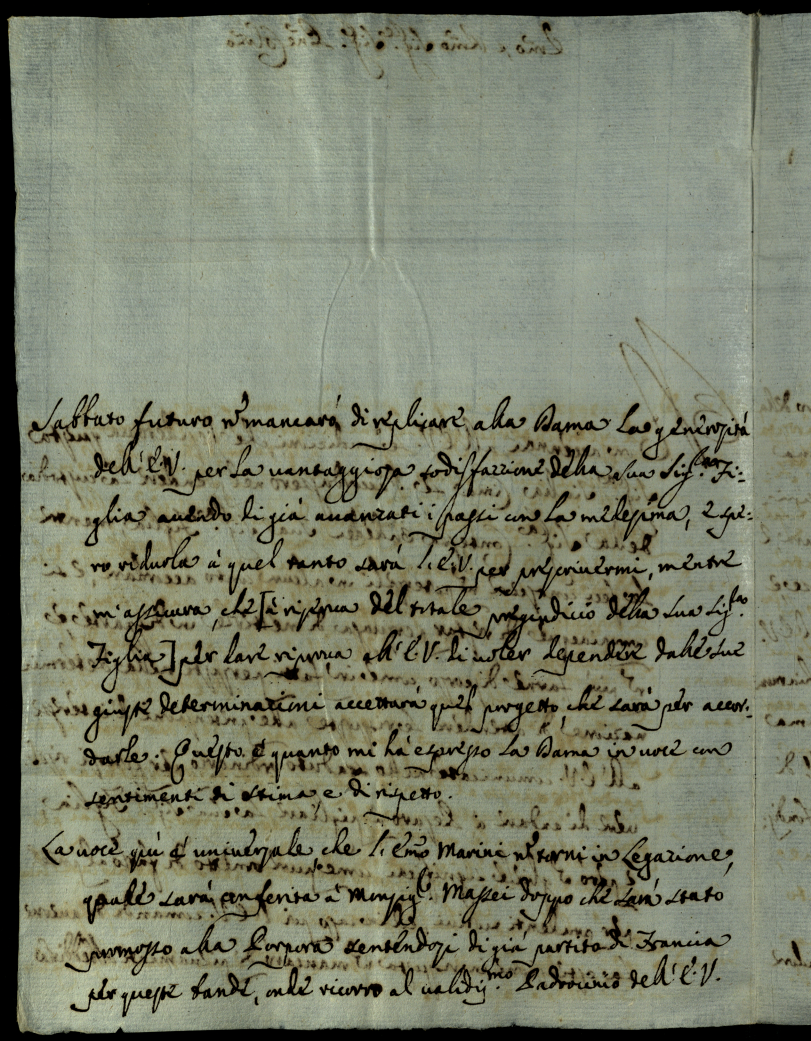 Sabbato futuro nõ mancarà di replicare alla Dama la generosità
dell'E.V. per la vantaggiosa sodisfazzione della sua Sig.ra Fi=
glia avendo di già avanzati i passi con la medesima, e spe=
ro ridurla à quel tanto sarà l'E.V. per prescrivermi, mentre
m'assicura, che [à riserva del totale pregiudicio della sua Sig.ra
Figlia] per dare riprova all'E.V. di voler dependere dalle sue
giuste determinazioni accettarà quel progetto, che sarà per accor=
darle. Questo è quanto mi hà espresso la Dama in voce con
sentimenti di stima, e di rispetto.
La voce più è universale che l'Emõ Marini nõ torni in Legazione,
quale sarà conferita à Monsig.r Massei doppo che sarà stato
promosso alla Porpora sentendosi di già partito di Francia
per queste bande, onde ricorro al validiss.mo Padrocinio dell'E.V.